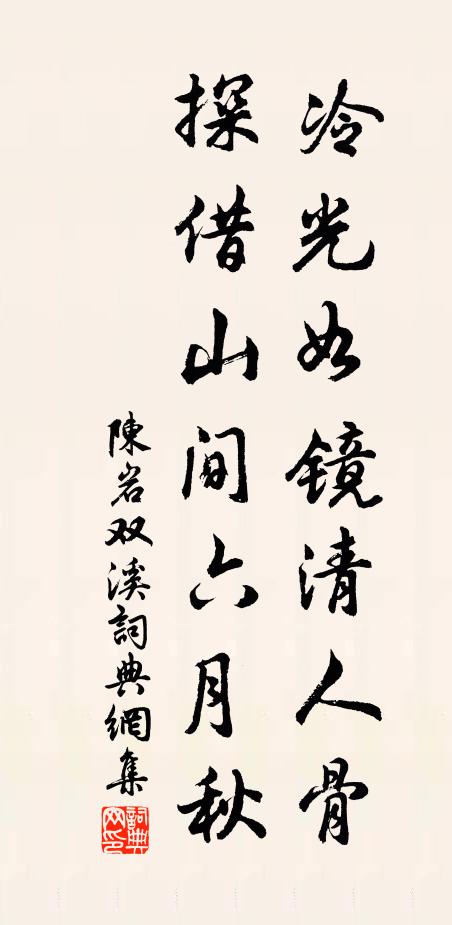 冷光如镜清人骨
探借山间六月秋
陳岩双溪詞典網集
詞典網印